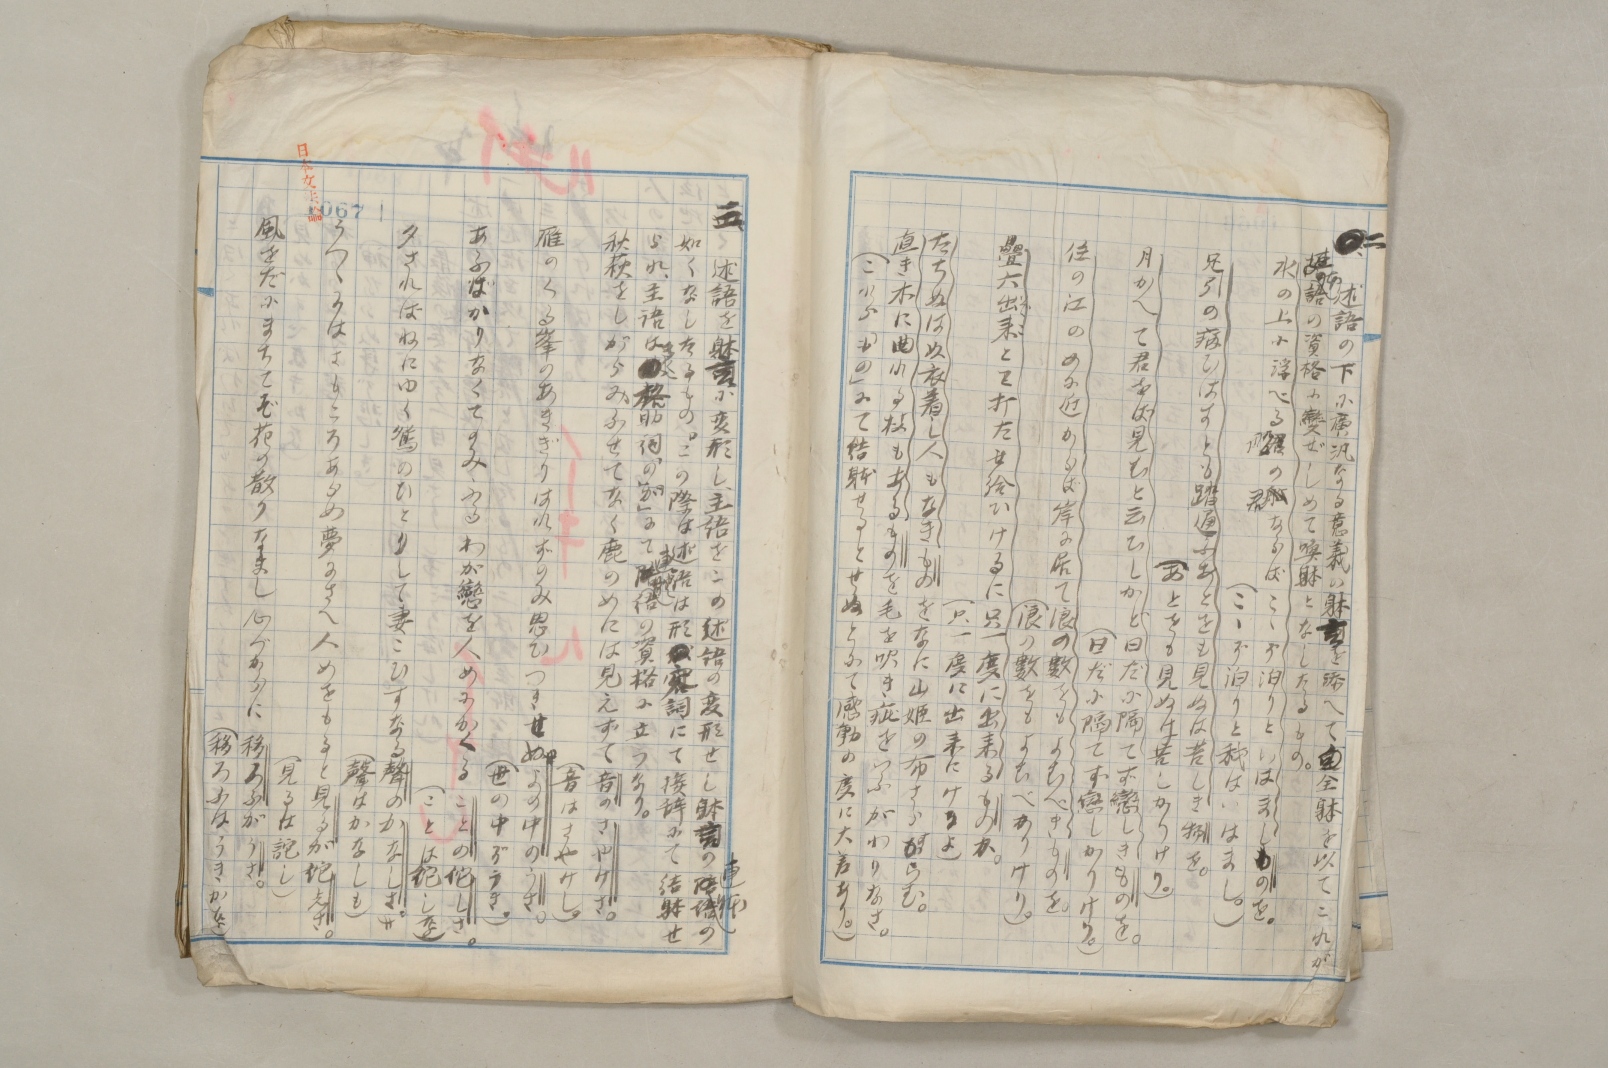 二、述語の下に廣汎なる意義の躰言を添へて全躰を以てこれが
述語の資格に變ぜしめて喚躰となしたるもの。
水の上に浮べる船の君ならばこゝぞ泊りといはましものを。
(こゝぞ泊りと我はいはまし。)
足引の病ひはすとも踏通ふあとをも見ぬは苦しき物を。
(あとをも見ぬは苦しかりけり。)
月かへて君をば見むと云ひしかど日だに隔てず戀しきものを。
(日だに隔てず戀しかりけり。)
住の江のめに近からば岸に居て浪の數をもよむべきものを。
(浪の數をもよむべかりけり。)
疊六出来とて打たせ給ひけるに只一度に出来るものか。
(只一度に出来にけるよ)
たちぬはぬ衣着し人もなきものをなに山姫の布さらすらむ。
直き木に曲れる枝もあるものを毛を吹き疵をいふがわりなさ。
(これら「もの」にて結躰せるとせぬとにて感動の度に大差あり。)
三、述語を躰言に変形し、主語をこの述語の変形せし躰言の連躰語の
如くなしたるもの。この際は述語は形容詞にて接辞さにて結躰せ
られ、主語は格助詞「の」「が」にて連躰語の資格に立つなり。
秋萩をしがらみふせてなく鹿のめには見えずて音のさやけさ。
(音はさやけし。)
雁のくる峯のあさぎりはれずのみ思ひつきせぬよの中のうさ。
(世の中ぞうき。)
あふばかりなくてのみふるわが戀を人めにかくることの侘しさ。
(ことは侘しな)
夕さればねにゆく鴛のひとりして妻ごひすなる聲のかなしさ。
(聲はかなしも)
うつゝにはさもこそあらめ夢にさへ人めをもると見るが侘しさ。
(見るは詫し)
風をだにまちてぞ花の散りなまし心づからに移ろふがうさ。
(移ろふはうきかな)
日本文法論
1067